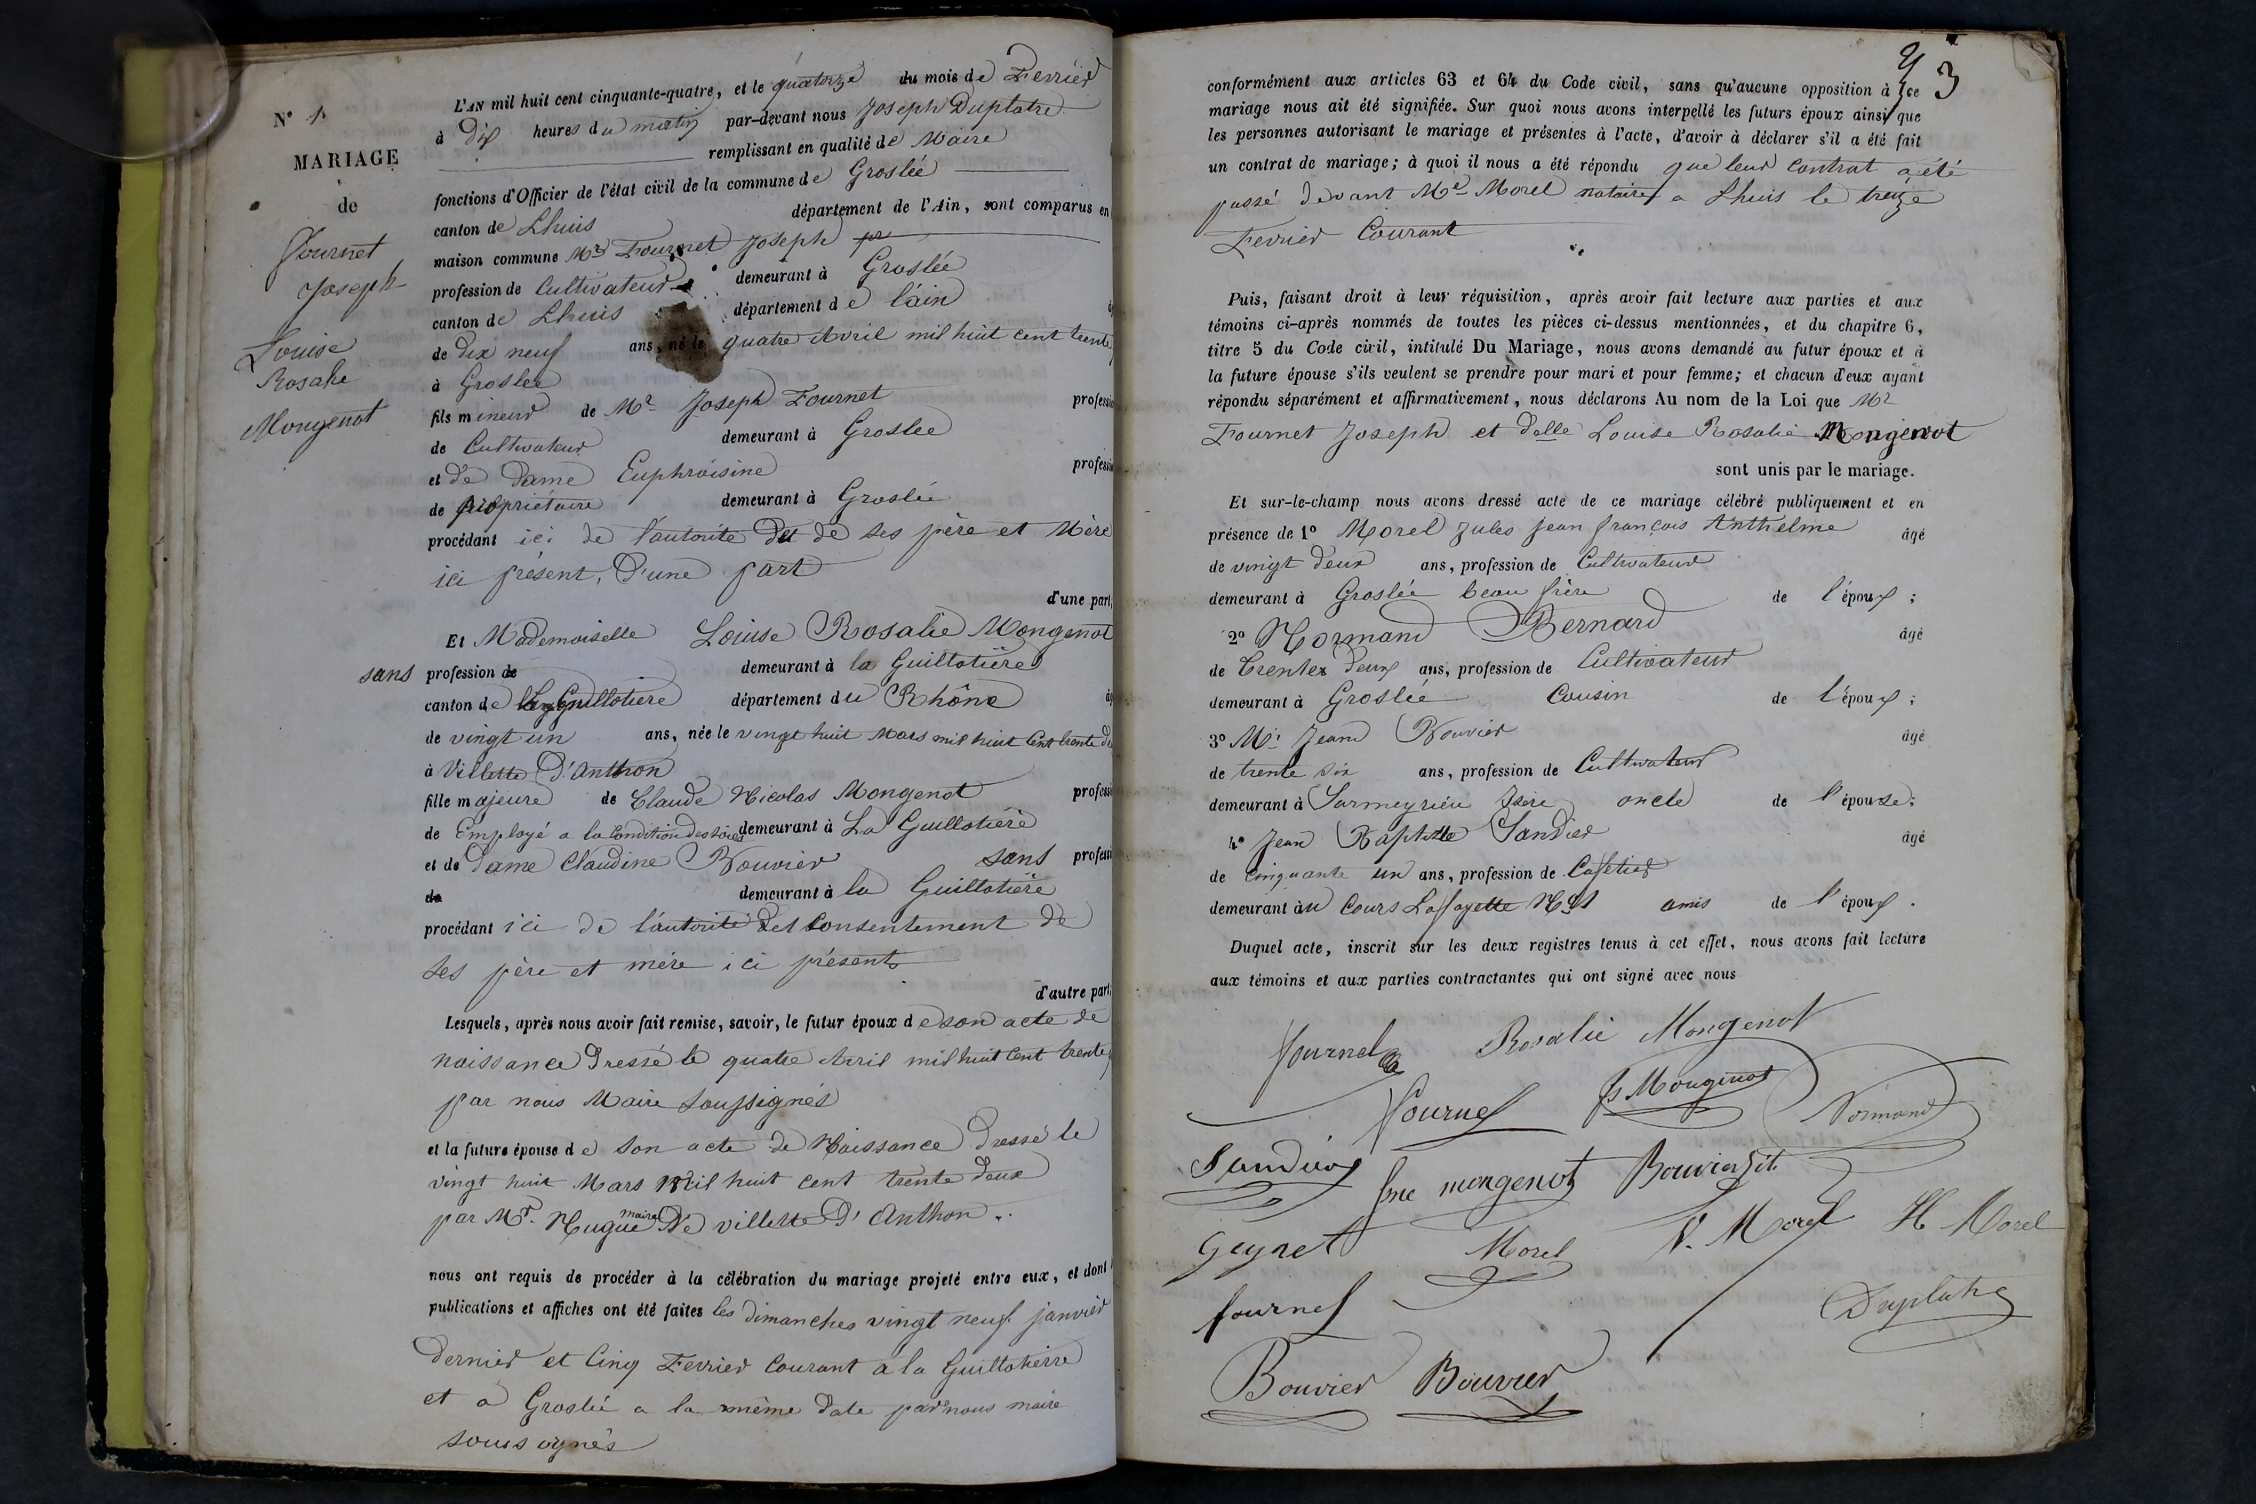 N° 1
MARIAGE
de
Fournet
Joseph
Louise
Rosalie
Mongenot
L'AN mil huit cent cinquante-quatre, et le quatorze du mois de Fevrier
à dix heures du matin par-devant nous Joseph Duplatre
remplissant en qualité de Maire
fonctions d'Officier de l'état civil de la commune de Groslée
canton de Lhuis département de l'Ain, sont comparus en
maison commune Mr Fournet Joseph
profession de Cultivateur demeurant à Groslée
canton de Lhuis département de l'ain
de dix neuf ans, né le quatre Avril mil huit cent trente
à Groslee
fils mineur de Mr Joseph Fournet professi
de Cultivateur demeurant à Groslee
et de Dame Euphroisine professi
de propriétaire demeurant à Groslée
procédant ici de l'autorité de ses père et Mère
ici présent, D'une part
d'une part,
Et Mademoiselle Louise Rosalie Mongenot
sans profession de demeurant à la Guillotière
canton de la Guillotière département du Rhône
de vingt un ans, née le vingt huit Mars mil huit Cent trente
à Villette D'Anthon
fille majeure de Claude Nicolas Mongenot professi
de Employé a la Condition des soies demeurant à La Guillotière
et de Dame Claudine Bouvier sans professi
de demeurant à la Guillotière
procédant ici de l'autorité et Consentement de
ses père et mère ici présents
d'autre part,
Lesquels, après nous avoir fait remise, savoir, le futur époux de son acte de
naissance Dressé le quatre Avril mil huit Cent trente
par nous Maire Soussignés
et la future épouse de son acte de Naissance dressé le
vingt huit Mars Mil huit cent trente Deux
par Mr. Nugue maire De villette D'Anthon
nous ont requis de procéder à la célébration du mariage projeté entre eux, et dont
publications et affiches ont été faites les dimanches vingt neuf janvier
Dernier et Cinq Fevrier Courant a la Guillotierre
et a Groslée a la même Date par nous maire
soussognés
3
conformément aux articles 63 et 64 du Code civil, sans qu'aucune opposition à ce
mariage nous ait été signifiée. Sur quoi nous avons interpellé les futurs époux ainsi que
les personnes autorisant le mariage et présentes à l'acte, d'avoir à déclarer s'il a été fait
un contrat de mariage; à quoi il nous a été répondu que leur Contrat a été
passé devant Me Morel notaire a Lhuis le treize
Fevrier Courant
Puis, faisant droit à leur réquisition, après avoir fait lecture aux parties et aux
témoins ci-après nommés de toutes les pièces ci-dessus mentionnées, et du chapitre 6,
titre 5 du Code civil, intitulé Du Mariage, nous avons demandé au futur époux et à
la future épouse s'ils veulent se prendre pour mari et pour femme; et chacun d'eux ayant
répondu séparément et affirmativement, nous déclarons Au nom de la Loi que Mr
Fournet Joseph et delle Louise Rosalie Mongenot
sont unis par le mariage.
Et sur-le-champ nous avons dressé acte de ce mariage célébré publiquement et en
présence de 1° Morel Jules Jean françois Anthelme âgé
de vingt Deux ans, profession de Cultivateur
demeurant à Groslée beau frère de l'époux;
2° Normand Bernard âgé
de Trente deux ans, profession de Cultivateur
demeurant à Groslée Cousin de l'époux;
3° Mr Jean Bouvier âgé
de trente six ans, profession de Cultivateur
demeurant à Sarmeyrieu Isère oncle de l'épouse;
4° Jean Baptiste Sandier âgé
de Cinquante un ans, profession de Cafetier
demeurant au Cours Laffayette amis de l'époux.
Duquel acte, inscrit sur les deux registres tenus à cet effet, nous avons fait lecture
aux témoins et aux parties contractantes qui ont signé avec nous
fournet Rosalie Mongenot
fournet Mongenot Normand
Sandier fne mongenot Bouvier
Geynet Morel V. Morel H Morel
fournet Duplatre
Bouvier Bouvier